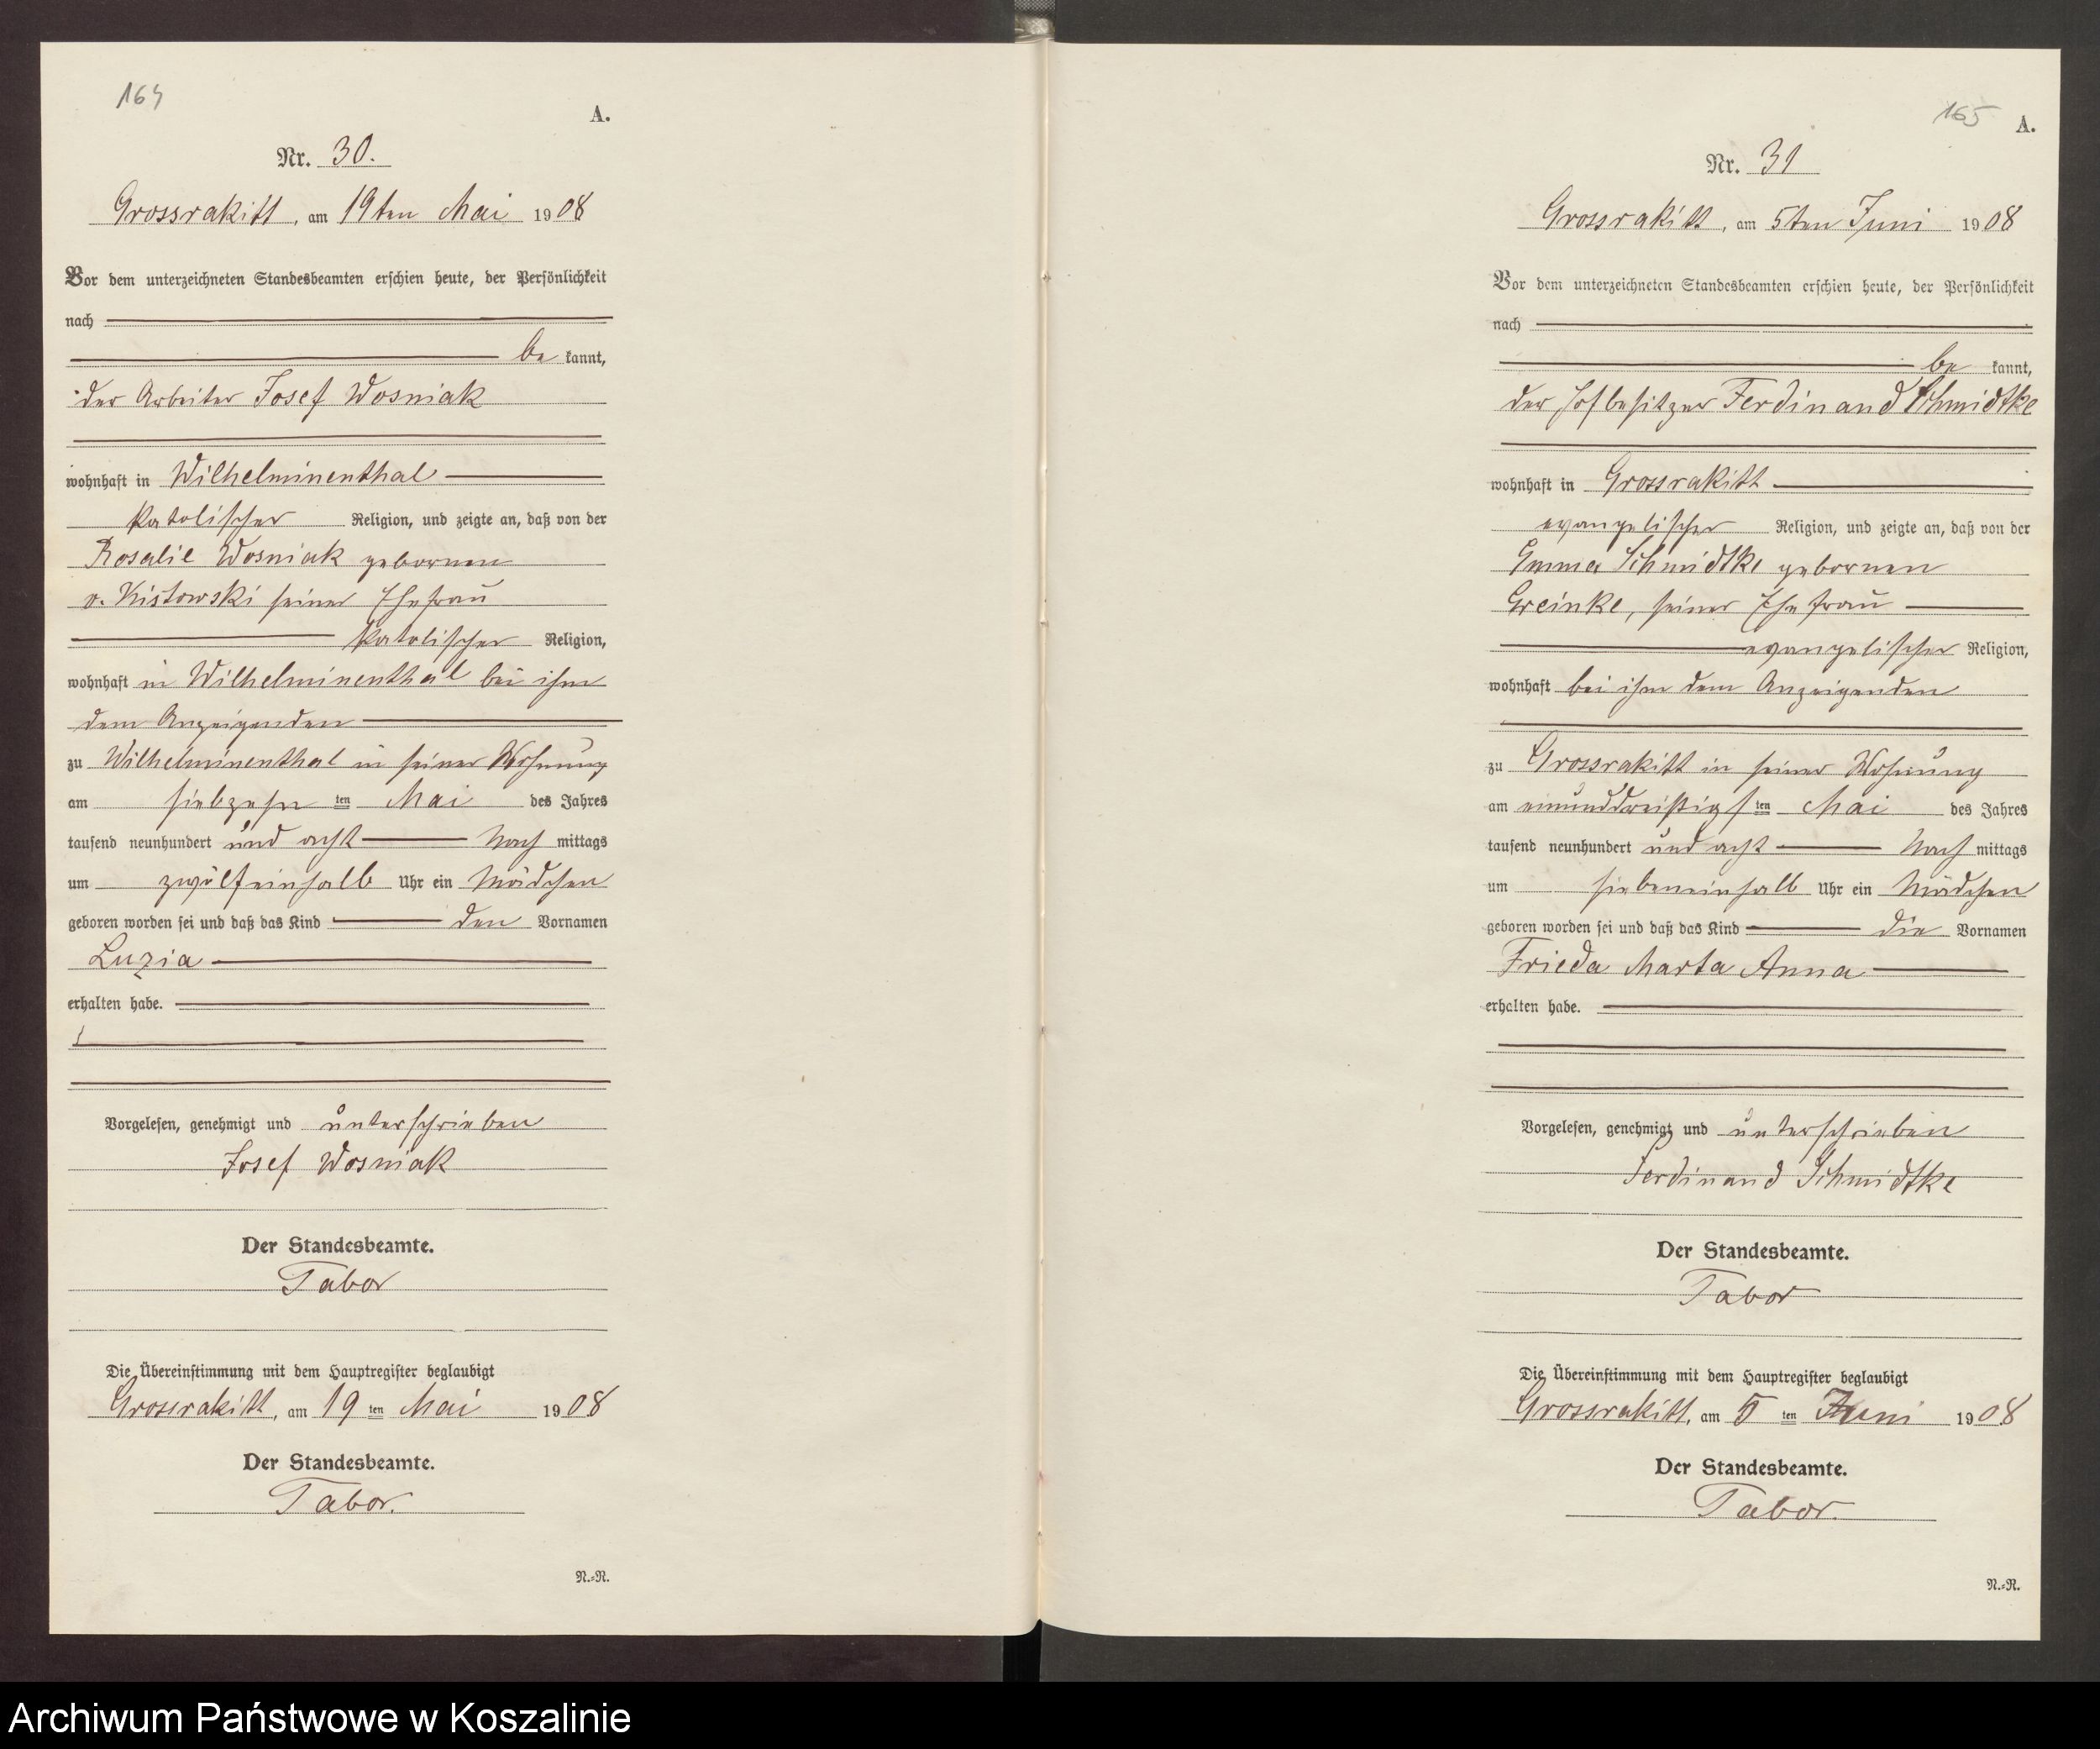 164
A.
Nr. 30.
Grossrakitt, am 19ten Mai 1908
Vor dem unterzeichneten Standesbeamten erschien heute, der Persönlichkeit
nach
be kannt,
der Arbeiter Josef Wosniak
wohnhaft in Wilhelminenthal
katolischer Religion, und zeigte an, daß von der
Rosalie Wosniak gebornen
v. Kistowski seiner Ehefrau
katolischer Religion,
wohnhaft in Wilhelminenthal bei ihm
dem Anzeigenden
zu Wilhelminenthal in seiner Wohnung
am siebzehn ten Mai des Jahres
tausend neunhundert und acht Nach mittags
um zwölfeinhalb Uhr ein Mädchen
geboren worden sei und daß das Kind den Vornamen
Luzia
erhalten habe.
Vorgelesen, genehmigt und unterschrieben
Josef Wosniak
Der Standesbeamte.
Tabor
Die Übereinstimmung mit dem Hauptregister beglaubigt
Grossrakitt, am 19 ten Mai 1908
Der Standesbeamte.
Tabor.
N.=N.
165
A.
Nr. 31
Grossrakitt, am 5ten Juni 1908
Vor dem unterzeichneten Standesbeamten erschien heute, der Persönlichkeit
nach
be kannt,
der Hofbesitzer Ferdinand Schmidtke
wohnhaft in Grossrakitt
evangelischer Religion, und zeigte an, daß von der
Emma Schmidtke gebornen
Greinke, seiner Ehefrau
evangelischer Religion,
wohnhaft bei ihm dem Anzeigenden
zu Grossrakitt in seiner Wohnung
am einunddreißigs ten Mai des Jahres
tausend neunhundert und acht Nach mittags
um siebeneinhalb Uhr ein Mädchen
geboren worden sei und daß das Kind die Vornamen
Frieda Marta Anna
erhalten habe.
Vorgelesen, genehmigt und unterschrieben
Ferdinand Schmidtke
Der Standesbeamte.
Tabor
Die Übereinstimmung mit dem Hauptregister beglaubigt
Grossrakitt, am 5 ten Juni 1908
Der Standesbeamte.
Tabor.
N.=N.
Archiwum Państwowe w Koszalinie